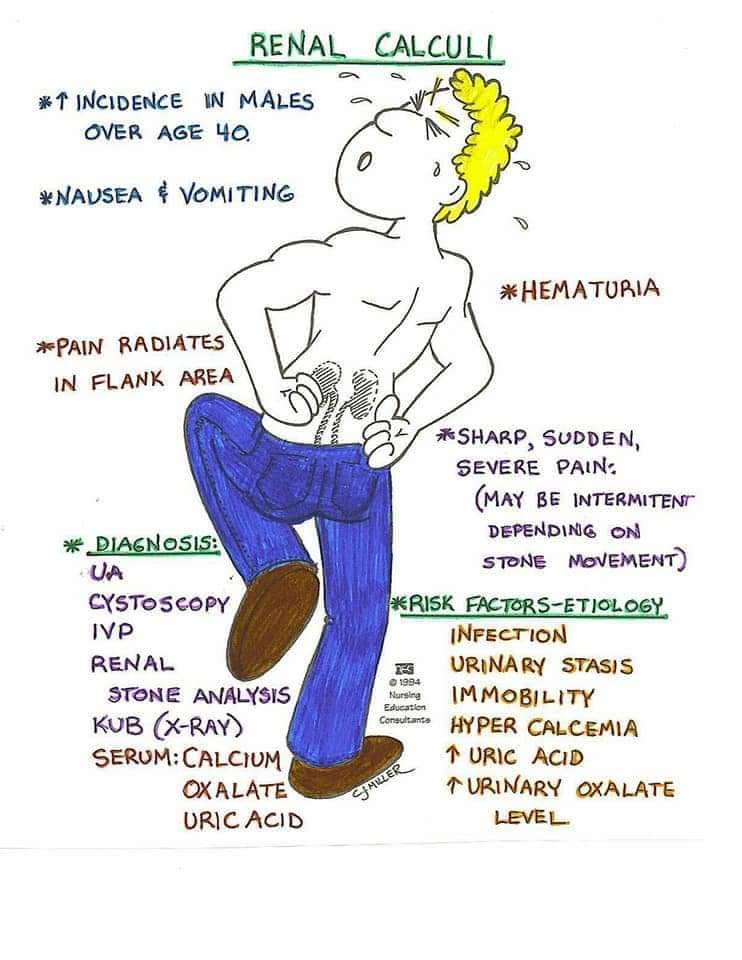 RENAL CALCULI
*↑ INCIDENCE IN MALES
OVER AGE 40.
*NAUSEA & VOMITING
*HEMATURIA
*PAIN RADIATES
IN FLANK AREA
*SHARP, SUDDEN,
SEVERE PAIN:
(MAY BE INTERMITENT
DEPENDING ON
STONE MOVEMENT)
* DIAGNOSIS:
UA
CYSTOSCOPY
IVP
RENAL
STONE ANALYSIS
KUB (X-RAY)
SERUM: CALCIUM
OXALATE
URIC ACID
*RISK FACTORS-ETIOLOGY
INFECTION
URINARY STASIS
IMMOBILITY
HYPER CALCEMIA
↑ URIC ACID
↑ URINARY OXALATE
LEVEL
NEC
© 1994
Nursing
Education
Consultants
CJMILLER